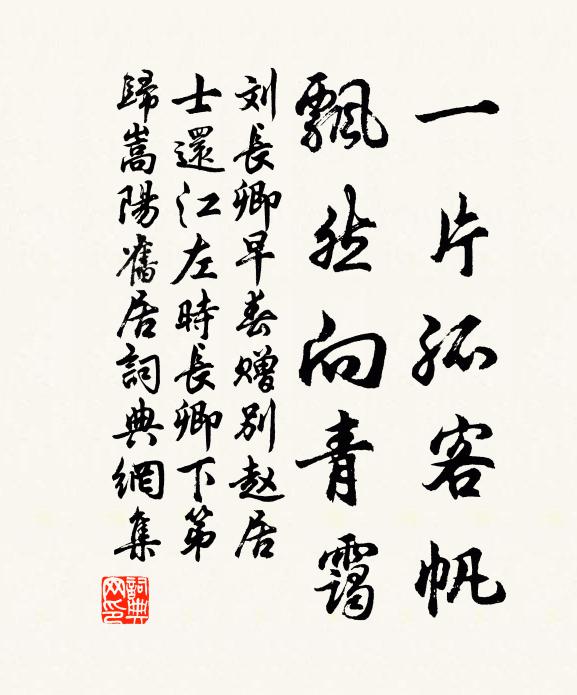 一片孤客帆
飄然向青靄
刘長卿早春赠别赵居
士還江左時長卿下第
歸嵩陽舊居詞典網集
詞典網印